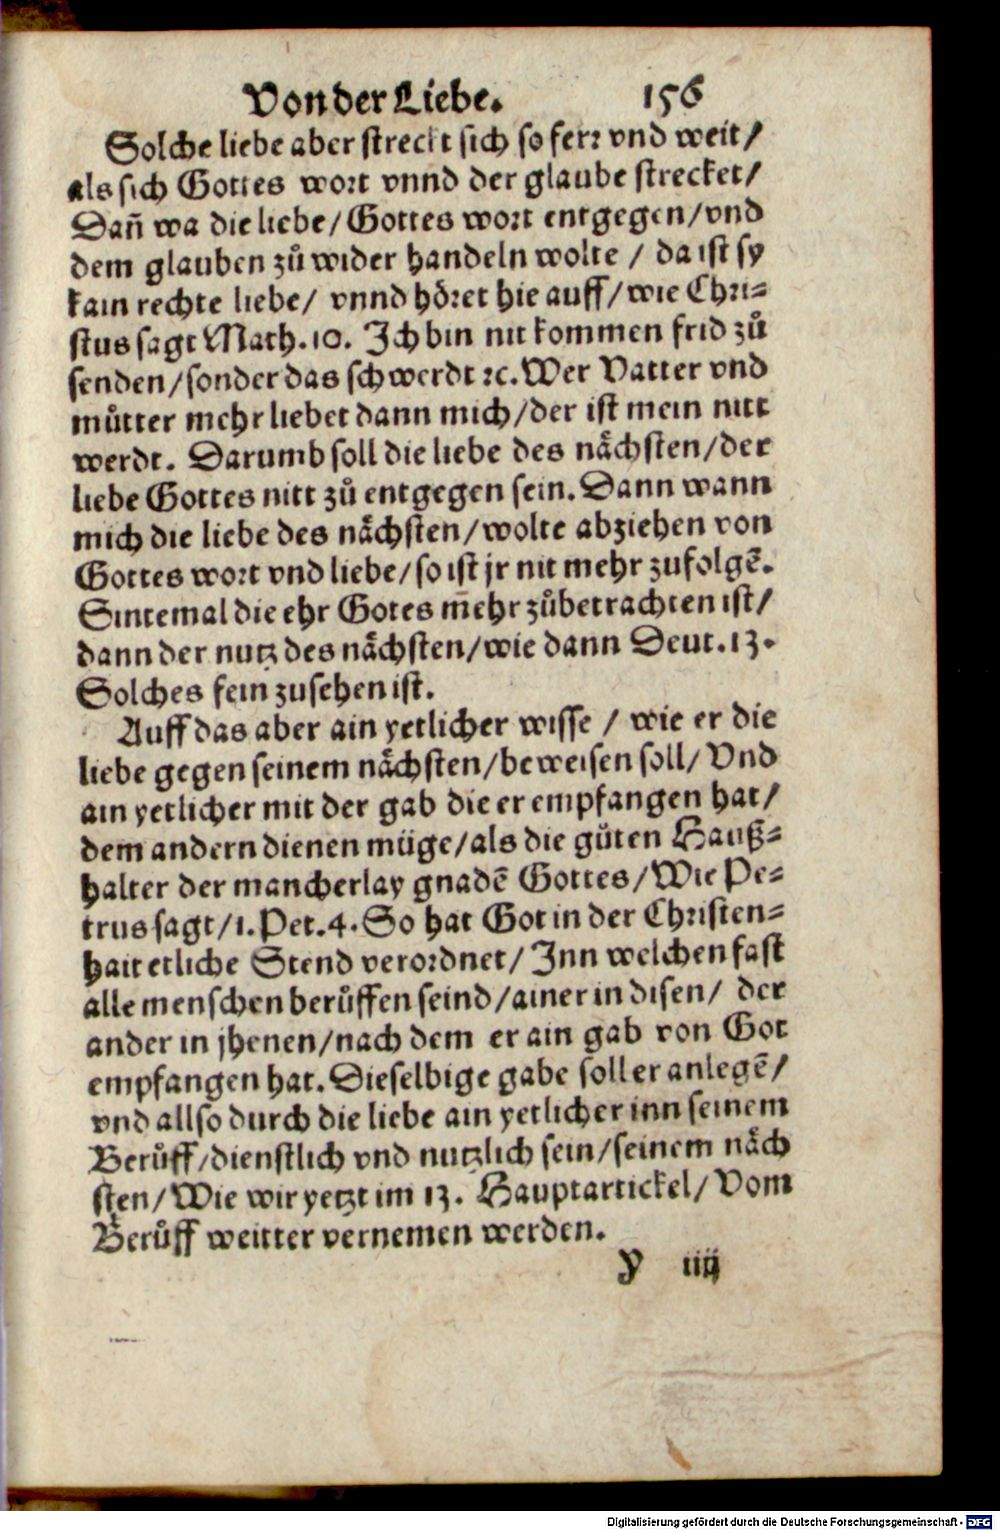 Von der Liebe. 156
Solche liebe aber streckt sich so ferꝛ vnd weit/
als sich Gottes woꝛt vnnd der glaube strecket/
Dañ wa die liebe/Gottes woꝛt entgegen/vnd
dem glauben zů wider handeln wolte / da ist sy
kain rechte liebe/ vnnd höꝛet hie auff/wie Chꝛi⸗
stus sagt Math.10. Ich bin nit kommen frid zů
senden/sonder das schwerdt ꝛc.Wer Vatter vnd
můtter mehr liebet dann mich/der ist mein nitt
werdt. Darumb soll die liebe des nächsten/der
liebe Gottes nitt zů entgegen sein.Dann wann
mich die liebe des nächsten/wolte abziehen von
Gottes woꝛt vnd liebe/so ist jr nit mehr zufolgẽ.
Sintemal die ehr Gotes m̄ehr zůbetrachten ist/
dann der nutz des nächsten/wie dann Deut.13.
Solches fein zusehen ist.
Auff das aber ain yetlicher wisse / wie er die
liebe gegen seinem nächsten/beweisen soll/ Vnd
ain yetlicher mit der gab die er empfangen hat/
dem andern dienen müge/als die gůten Hauß⸗
halter der mancherlay gnadẽ Gottes/Wie Pe⸗
trus sagt/1.Pet.4.So hat Got in der Chꝛisten⸗
hait etliche Stend veroꝛdnet/Inn welchen fast
alle menschen berůffen seind/ainer in disen/ der
ander in jhenen/nach dem er ain gab von Got
empfangen hat.Dieselbige gabe soll er anlegẽ/
vnd allso durch die liebe ain yetlicher inn seinem
Berůff/dienstlich vnd nutzlich sein/seinem näch
sten/Wie wir yetzt im 13. Hauptartickel/Vom
Berůff weitter vernemen werden.
y iiij
Digitalisierung gefördert durch die Deutsche Forschungsgemeinschaft - DFG